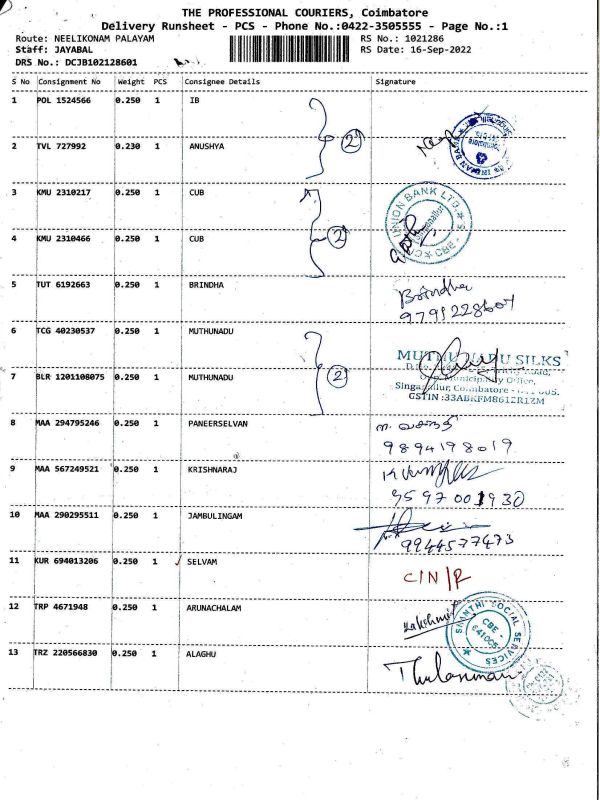 THE PROFESSIONAL COURIERS, Coimbatore
Delivery Runsheet - PCS - Phone No.:0422-3505555 - Page No.:1
Route: NEELIKONAM PALAYAM RS No.: 1021286
Staff: JAYABAL RS Date: 16-Sep-2022
DRS No.: DCJB102128601
S No Consignment No Weight PCS Consignee Details Signature
1 POL 1524566 0.250 1 IB
2
2 TVL 727992 0.230 1 ANUSHYA
3 KMU 2310217 0.250 1 CUB
UNION BANK LTD.
2
4 KMU 2310466 0.250 1 CUB
CBE
5 TUT 6192663 0.250 1 BRINDHA Brindha
9791228607
6 TCG 40230537 0.250 1 MUTHUNADU
MUTHUNADU SILKS
2
7 BLR 1201108075 0.250 1 MUTHUNADU
Singanallur, Coimbatore
GSTIN :33ABKFM8612R1ZM
8 MAA 294795246 0.250 1 PANEERSELVAN
9894198019
9 MAA 567249521 0.250 1 KRISHNARAJ
9597001930
10 MAA 290295511 0.250 1 JAMBULINGAM
9944577473
11 KUR 694013206 0.250 1 SELVAM
CIN/R
12 TRP 4671948 0.250 1 ARUNACHALAM Lakshmi
SHANTHI SOCIAL SERVICES
CBE -
641005
13 TRZ 220566830 0.250 1 ALAGHU